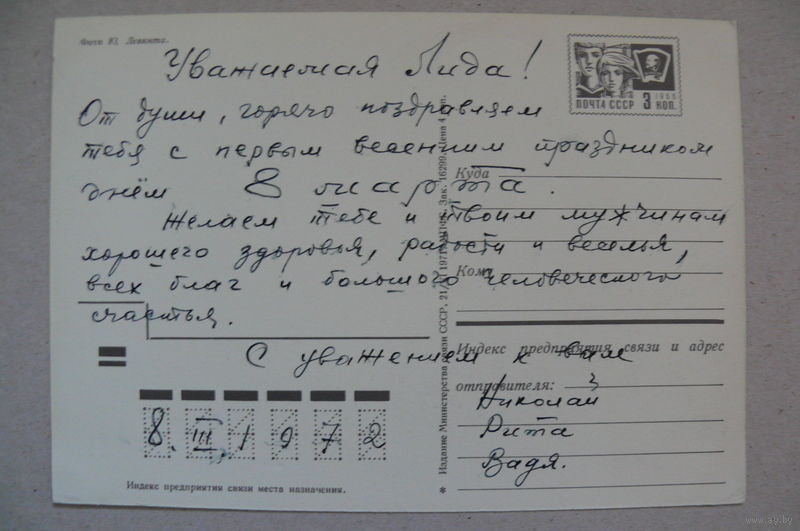 Фото Ю. Левянта.
Уважаемая Лида!
ПОЧТА СССР 3 КОП. 1966
От души, горячо поздравляем
тебя с первым весенним праздником
днём 8 марта.
Желаем тебе и твоим мужчинам
хорошего здоровья, радости и веселья,
всех благ и большого человеческого
счастья.
С уважением к Вам
Николай
Рита
Вадя.
8. III. 1972
Куда
Кому
Индекс предприятия связи и адрес
отправителя:
Индекс предприятия связи места назначения.
Издание Министерства связи СССР. Зак. 16299. Цена 4 коп.
www.ay.by